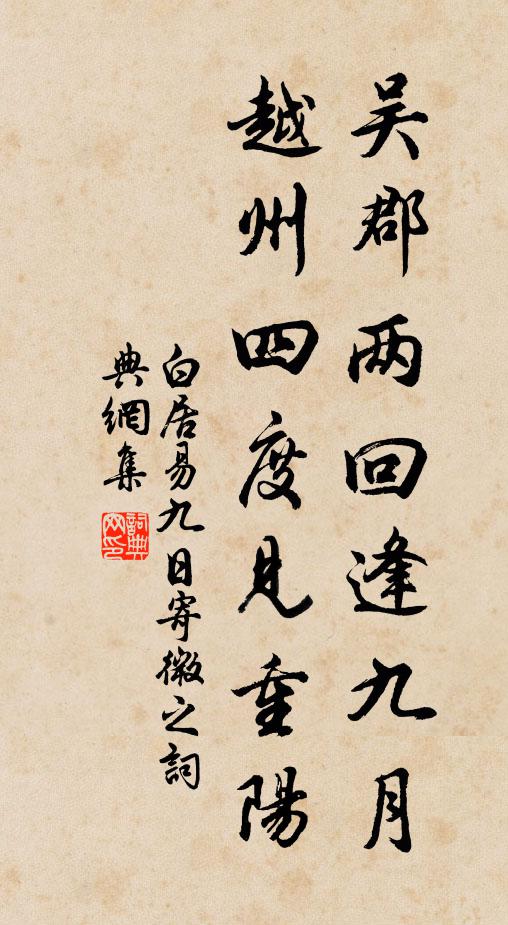 吴郡两回逢九月
越州四度見重陽
白居易九日寄微之詞
典網集
詞典网印